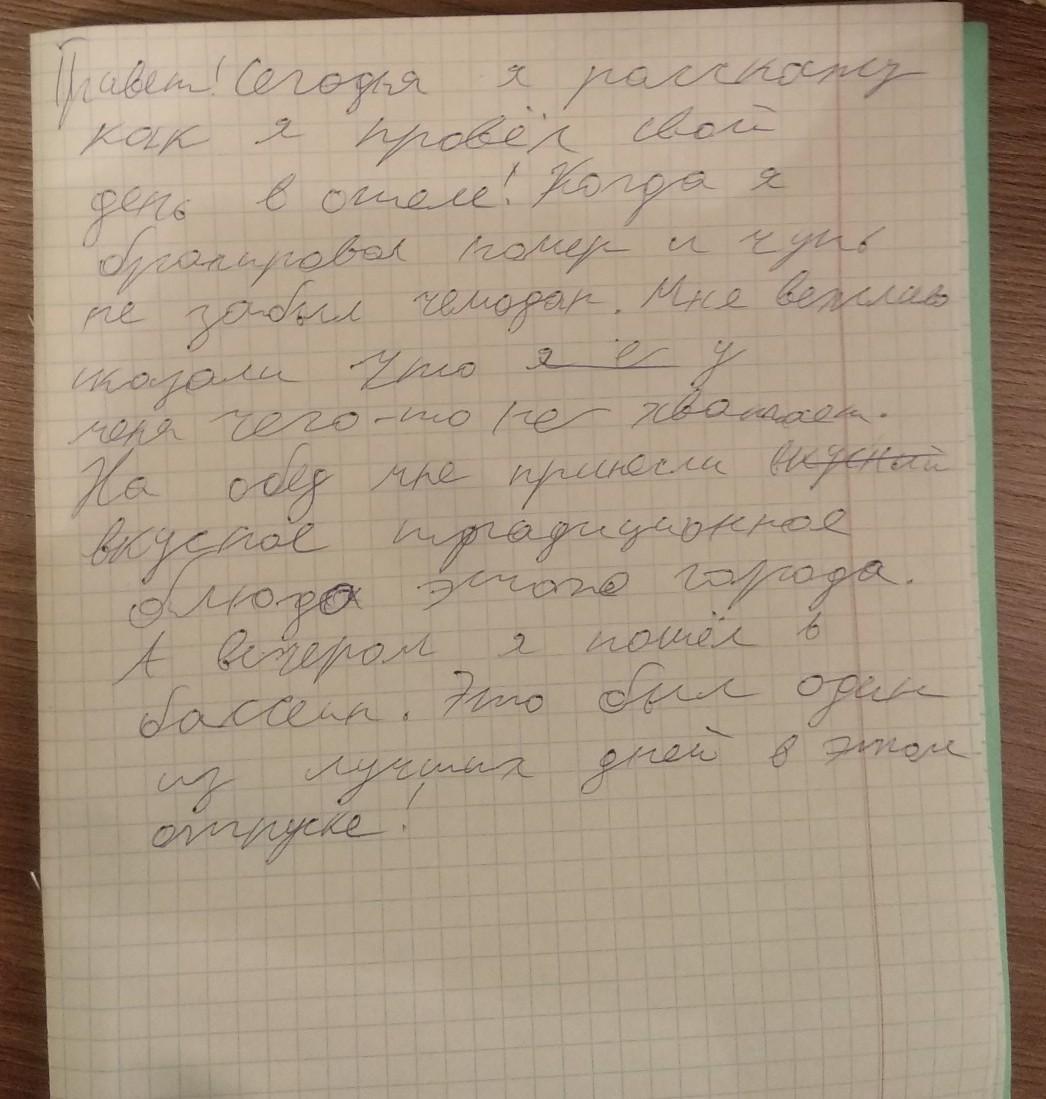 Привет! Сегодня я расскажу
как я провёл свой
день в отеле! Когда я
бронировал номер и чуть
не забыл чемодан. Мне вежливо
сказали что я е у
меня чего-то не хватает.
На обед мне принесли вкусний
вкусное традиционное
блюдо этого города.
А вечером я пошёл в
бассеин. Это был один
из лучших дней в этом
отпуске!